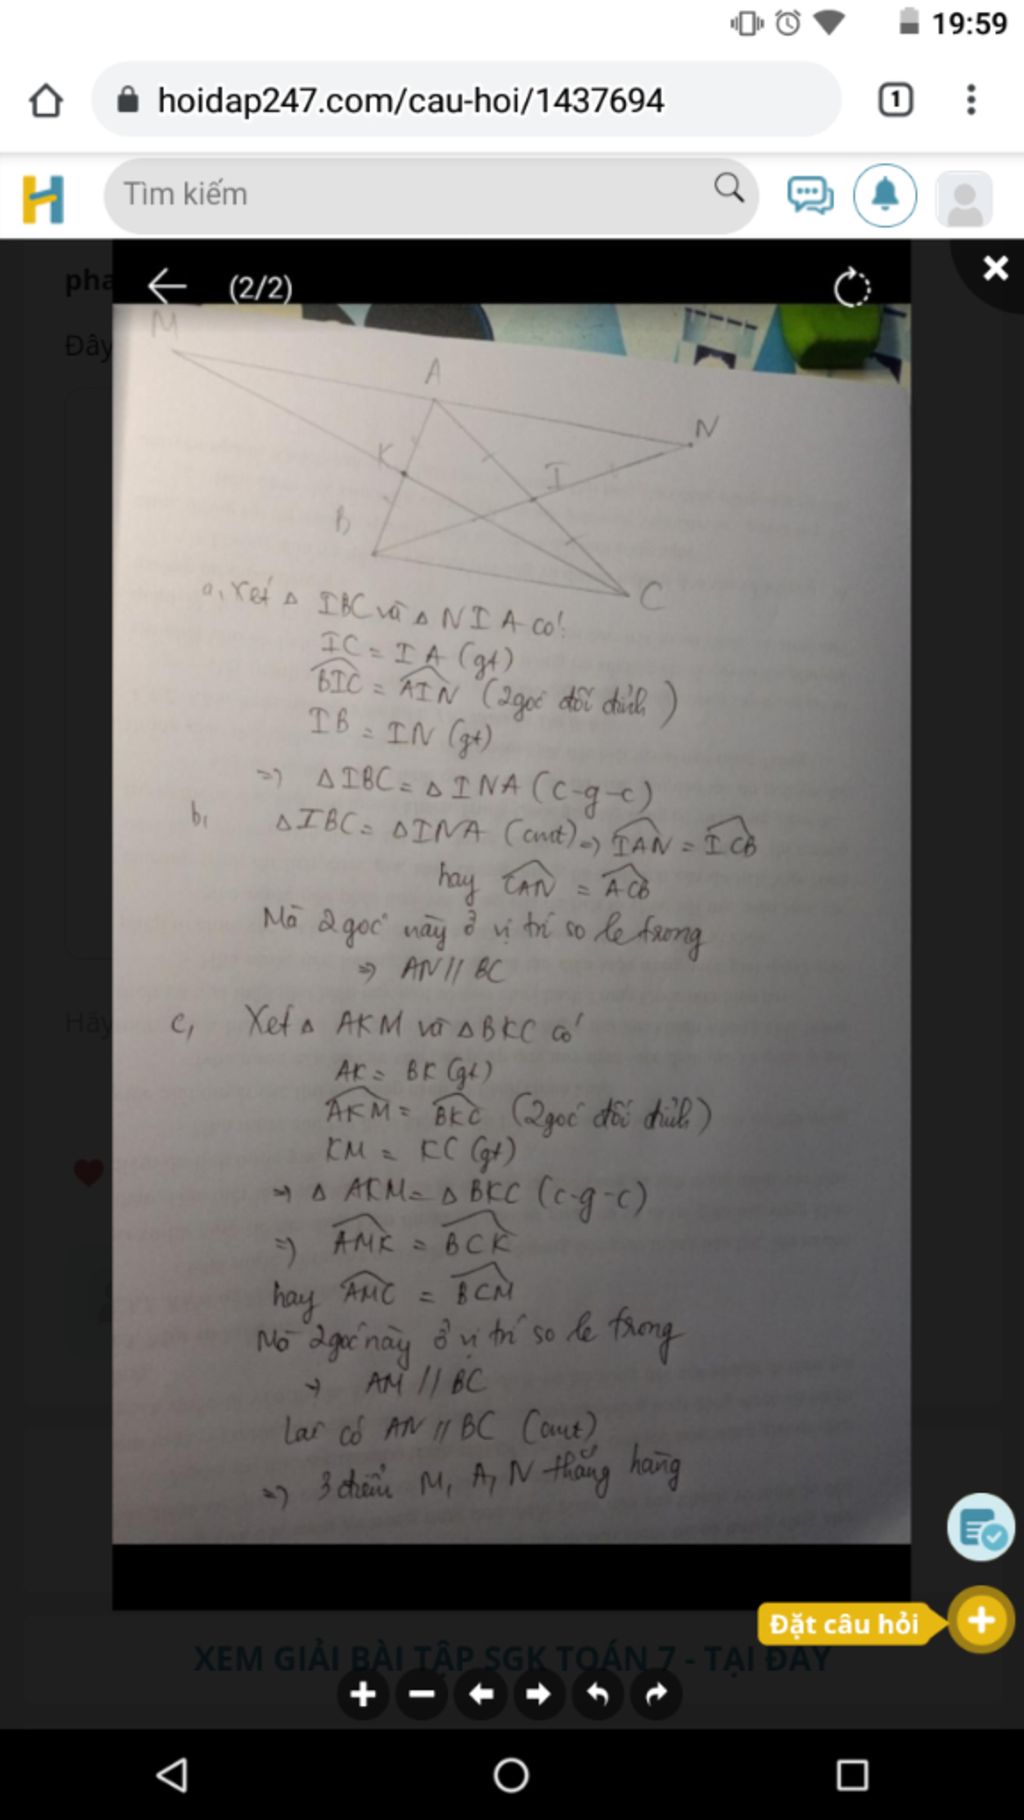 19:59
hoidap247.com/cau-hoi/1437694
1
Tìm kiếm
pha
(2/2)
Đây
M
A
N
K
I
B
C
a, Xét △ IBC và △ NIA có:
IC = IA (gt)
BIC = AIN (2 góc đối đỉnh)
IB = IN (gt)
=> △IBC = △INA (c-g-c)
b, △IBC = △INA (cmt) => IAN = ICB
hay CAN = ACB
Mà 2 góc này ở vị trí so le trong
=> AN // BC
Hãy
c, Xét △ AKM và △ BKC có
AK = BK (gt)
AKM = BKC (2 góc đối đỉnh)
KM = KC (gt)
=> △ AKM = △ BKC (c-g-c)
=> AMK = BCK
hay AMC = BCM
Mà 2 góc này ở vị trí so le trong
=> AM // BC
Lại có AN // BC (cmt)
=> 3 điểm M, A, N thẳng hàng
Đặt câu hỏi
XEM GIẢI BÀI TẬP SGK TOÁN 7 - TẠI ĐÂY